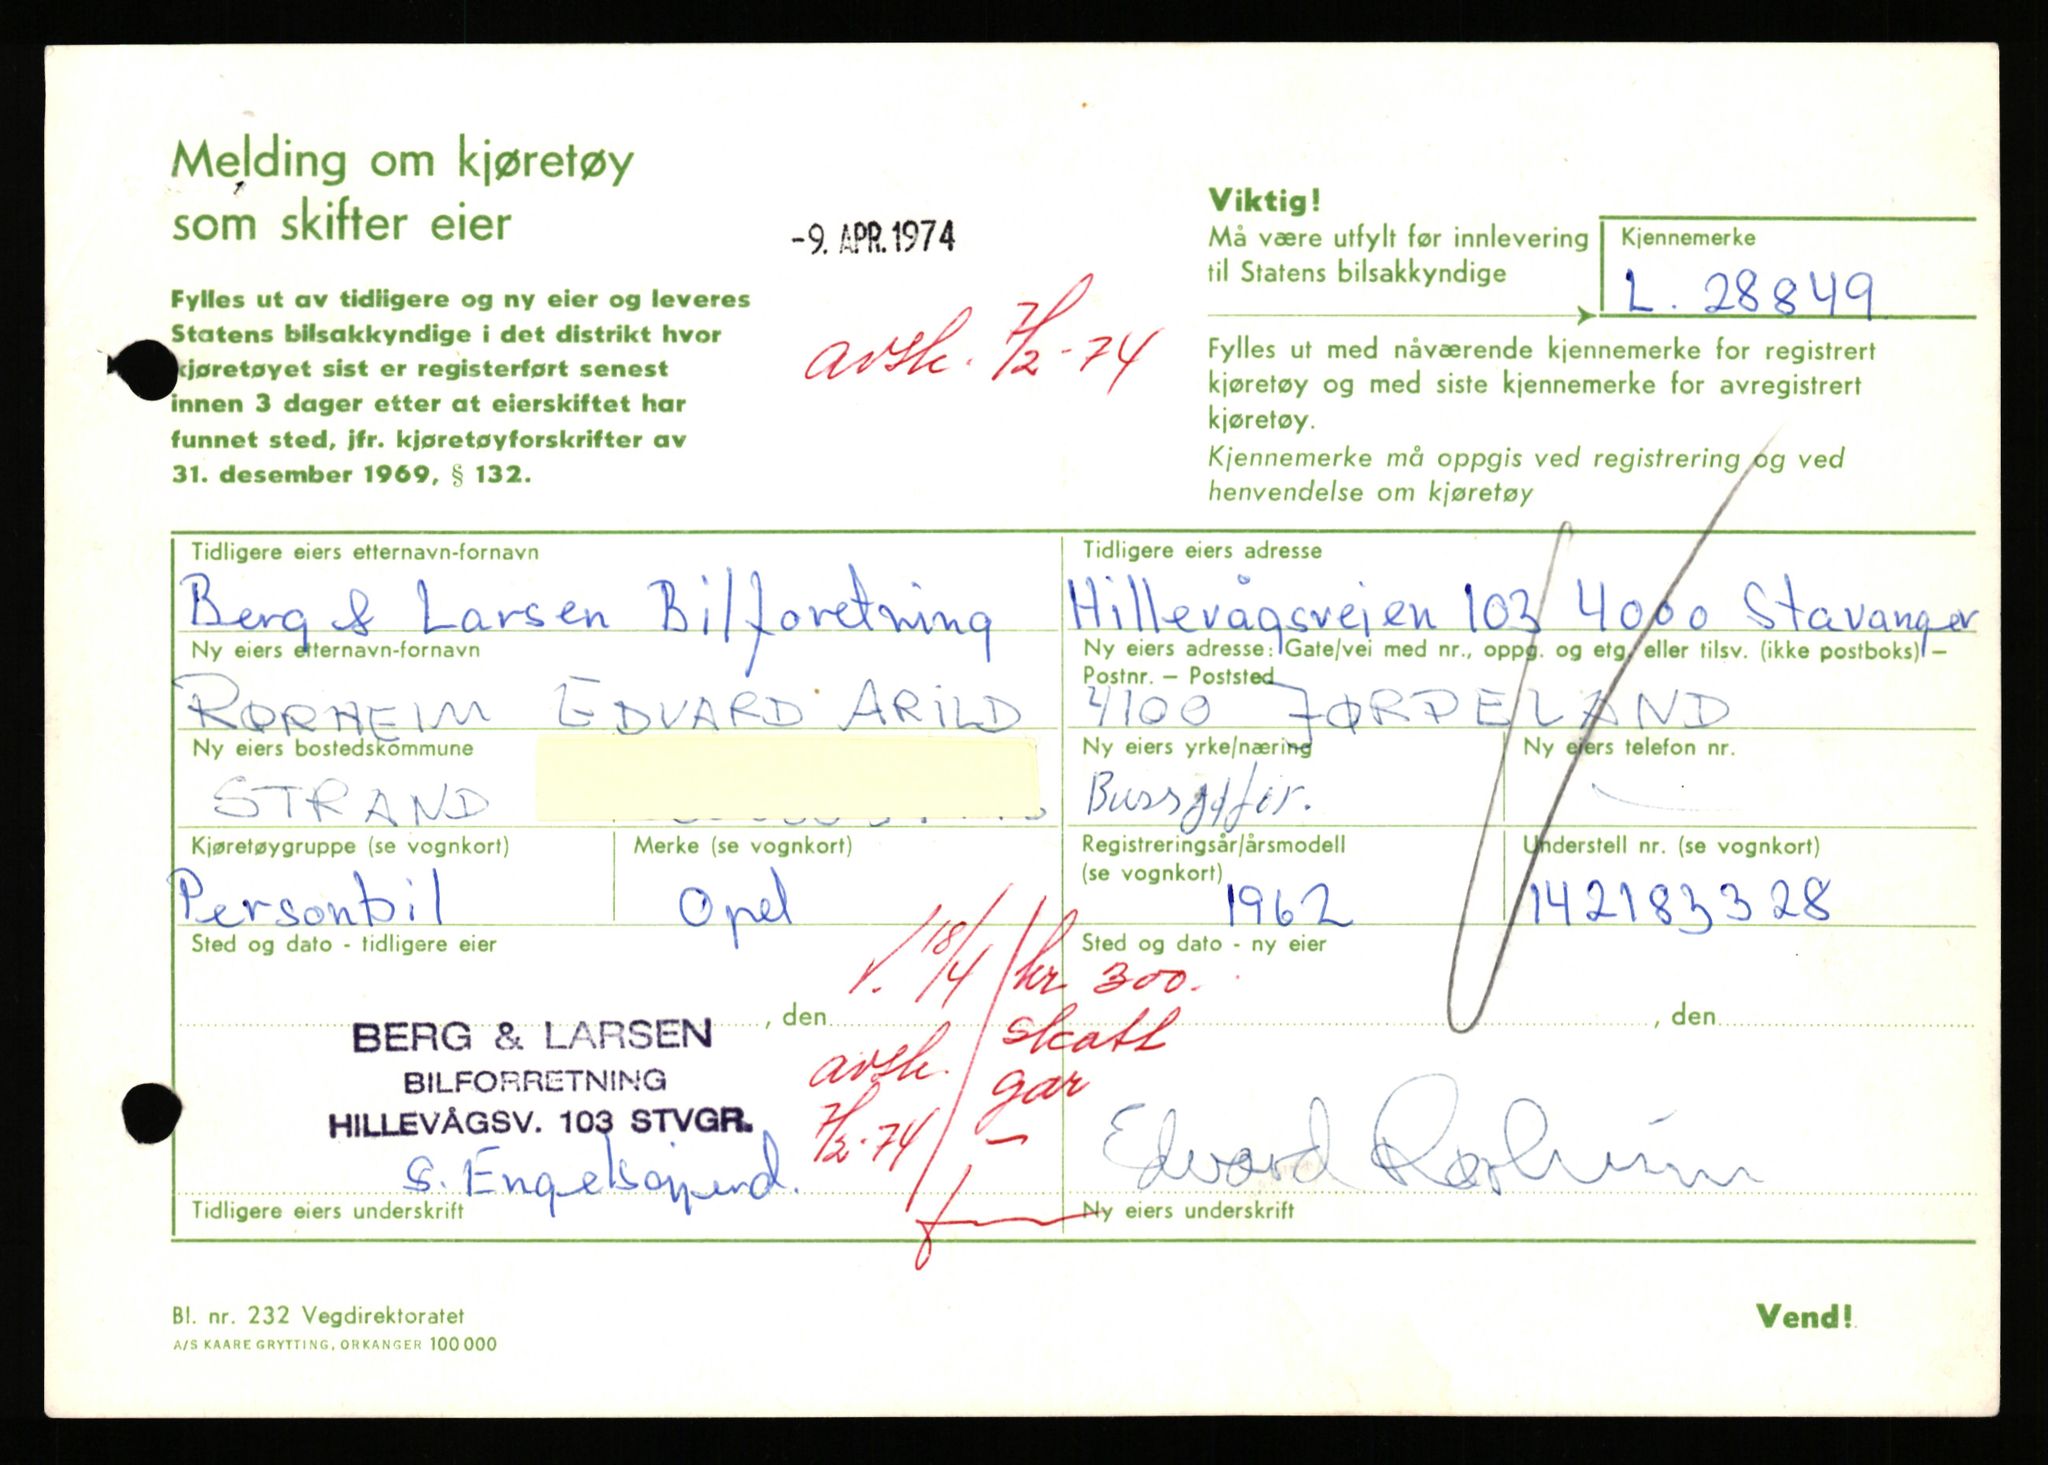 Melding om kjøretøy
som skifter eier
-9. APR. 1974
Viktig!
Må være utfylt før innlevering
til Statens bilsakkyndige
Kjennemerke
L. 28849
Fylles ut av tidligere og ny eier og leveres
Statens bilsakkyndige i det distrikt hvor
kjøretøyet sist er registerført senest
innen 3 dager etter at eierskiftet har
funnet sted, jfr. kjøretøyforskrifter av
31. desember 1969, § 132.
avsk. 7/2-74
Fylles ut med nåværende kjennemerke for registrert
kjøretøy og med siste kjennemerke for avregistrert
kjøretøy.
Kjennemerke må oppgis ved registrering og ved
henvendelse om kjøretøy
Tidligere eiers etternavn-fornavn
Berg & Larsen Bilforetning
Tidligere eiers adresse
Hillevågsveien 103 4000 Stavanger
Ny eiers etternavn-fornavn
RØRHEIM EDVARD ARILD
Ny eiers adresse: Gate/vei med nr., oppg. og etg. eller tilsv. (ikke postboks) –
Postnr. – Poststed
4100 JØRPELAND
Ny eiers bostedskommune
STRAND
Ny eiers yrke/næring
Ny eiers telefon nr.
Kjøretøygruppe (se vognkort)
Personbil
Merke (se vognkort)
Opel
Registreringsår/årsmodell
(se vognkort)
1962
Understell nr. (se vognkort)
142183328
Sted og dato - tidligere eier
18/4
kr 300.
skatt
gar
Sted og dato - ny eier
, den
, den
BERG & LARSEN
BILFORRETNING
HILLEVÅGSV. 103 STVGR.
avsk.
7/2-74
Edvard Rørheim
Tidligere eiers underskrift
Ny eiers underskrift
Bl. nr. 232 Vegdirektoratet
A/S KAARE GRYTTING, ORKANGER 100 000
Vend!